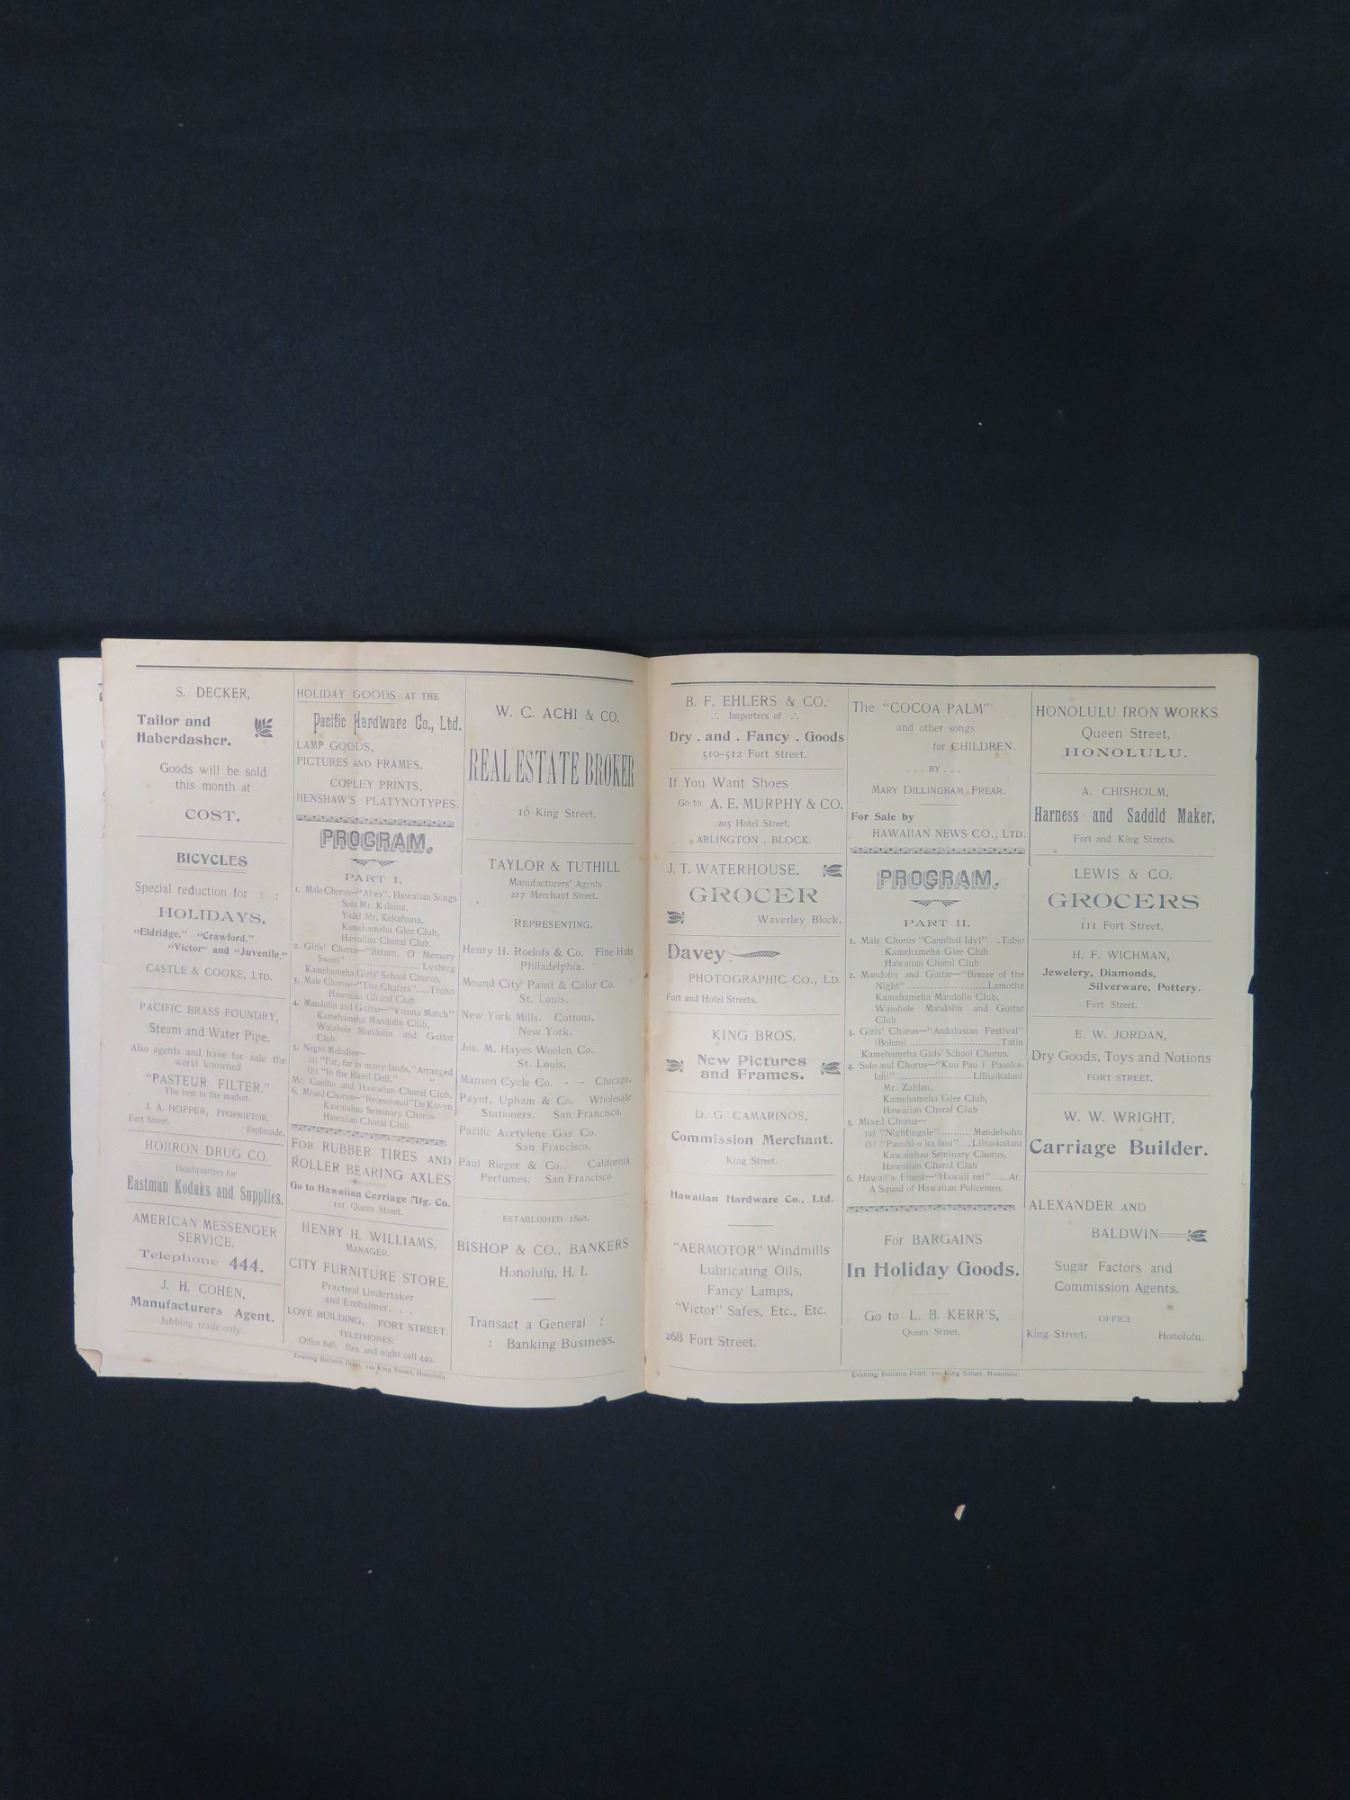 S. DECKER,
Tailor and
Haberdasher.
Goods will be sold
this month at
COST.
BICYCLES
Special reduction for : :
HOLIDAYS.
"Eldridge," "Crawford,"
"Victor" and "Juvenile,"
CASTLE & COOKE, LTD.
PACIFIC BRASS FOUNDRY,
Steam and Water Pipe.
Also agents and have for sale the
world knowned
"PASTEUR FILTER."
The best in the market.
J. A. HOPPER, PPOPRIETOR,
Fort Street. Esplanade.
HOBRON DRUG CO.
Headquarters for
Eastman Kodaks and Supplies.
AMERICAN MESSENGER
SERVICE.
Telephone 444.
J. H. COHEN,
Manufacturers Agent.
Jobbing trade only.
HOLIDAY GOODS AT THE
Pacific Hardware Co., Ltd.
LAMP GOODS,
PICTURES AND FRAMES,
COPLEY PRINTS,
HENSHAW'S PLATYNOTYPES.
PROGRAM.
PART I.
1. Male Chorus—"Alies". Hawaiian Songs
Solo Mr. Kilaina,
Yodel Mr. Kekahuna,
Kamehameha Glee Club,
Hawaiian Choral Club.
2. Girls' Chorus—"Return, O Memory
Sweet" Lysberg
Kamehameha Girls' School Chorus.
3. Male Chorus—"The Chafers"....Truhn
Hawaiian Choral Club
4. Mandolin and Guitar—"Vienna March"
Kamehameha Mandolin Club,
Waiahole Mandolin and Guitar
Club
5. Negro Melodies—
(a) "Far, far in many lands," Arranged
(b) "In the Hazel Dell." "
Mr. Coelho and Hawaiian Choral Club.
6. Mixed Chorus—"Recessional" De Koven
Kawaiahao Seminary Chorus
Hawaiian Choral Club
FOR RUBBER TIRES AND
ROLLER BEARING AXLES
Go to Hawaiian Carriage Mfg. Co.
121 Queen Street.
HENRY H. WILLIAMS,
MANAGER.
CITY FURNITURE STORE.
Practical Undertaker
and Embalmer. . .
LOVE BUILDING, FORT STREET
TELEPHONES:
Office 846. Res. and night call 449.
Evening Bulletin Print, 210 King Street, Honolulu
W. C. ACHI & CO.
REAL ESTATE BROKER
16 King Street.
TAYLOR & TUTHILL
Manufacturers' Agents
217 Merchant Street.
REPRESENTING.
Henry H. Roelofs & Co. Fine Hats
Philadelphia.
Mound City Paint & Color Co.
St. Louis.
New York Mills. Cottons.
New York.
Jos. M. Hayes Woolen Co.
St. Louis.
Manson Cycle Co. - - Chicago.
Payot, Upham & Co. Wholesale
Stationers. San Francisco.
Pacific Acetylene Gas Co.
San Francisco.
Paul Rieger & Co. California
Perfumes. San Francisco
ESTABLISHED 1898.
BISHOP & CO., BANKERS
Honolulu, H. I.
Transact a General :
: Banking Business.
B. F. EHLERS & CO.
∴ Importers of ∴
Dry . and . Fancy . Goods
510-512 Fort Street.
If You Want Shoes
Go to A. E. MURPHY & CO.
205 Hotel Street,
ARLINGTON . BLOCK.
J. T. WATERHOUSE,
GROCER
Waverley Block.
Davey
PHOTOGRAPHIC CO., LD
Fort and Hotel Streets.
KING BROS.
New Pictures
and Frames.
D. G. CAMARINOS,
Commission Merchant.
King Street.
Hawaiian Hardware Co., Ltd.
"AERMOTOR" Windmills
Lubricating Oils,
Fancy Lamps,
"Victor" Safes, Etc., Etc.
268 Fort Street.
The "COCOA PALM"
and other songs
for CHILDREN.
. . . BY . . .
MARY DILLINGHAM FREAR.
For Sale by
HAWAIIAN NEWS CO., LTD.
PROGRAM.
PART II.
1. Male Chorus "Cannibal Idyl"....Taber
Kamehameha Glee Club
Hawaiian Choral Club
2. Mandolin and Guitar—"Breeze of the
Night" Lamothe
Kamehameha Mandolin Club,
Waiahole Mandolin and Guitar
Club
3. Girls' Chorus—"Andalusian Festival"
(Bolero) Tatin
Kamehameha Girls' School Chorus.
4. Solo and Chorus—"Kuu Pau i Paoaka-
lani" Liliuokalani
Mr. Zablan,
Kamehameha Glee Club,
Hawaiian Choral Club
5. Mixed Chorus—
(a) "Nightingale" Mendelsohn
(b) "Pauahi o ka lani"...Liliuokalani
Kawaiahao Seminary Chorus,
Hawaiian Choral Club
6. Hawaii's Finest—"Hawaii nei"..... Ar.
A Squad of Hawaiian Policemen.
For BARGAINS
In Holiday Goods.
Go to L. B. KERR'S,
Queen Street.
Evening Bulletin Print, 210 King Street, Honolulu.
HONOLULU IRON WORKS
Queen Street,
HONOLULU.
A. CHISHOLM,
Harness and Saddld Maker.
Fort and King Streets.
LEWIS & CO.
GROCERS
111 Fort Street.
H. F. WICHMAN,
Jewelery, Diamonds,
Silverware, Pottery.
Fort Street.
E. W. JORDAN,
Dry Goods, Toys and Notions
FORT STREET.
W. W. WRIGHT,
Carriage Builder.
ALEXANDER AND
BALDWIN
Sugar Factors and
Commission Agents.
OFFICE
King Street, Honolulu.